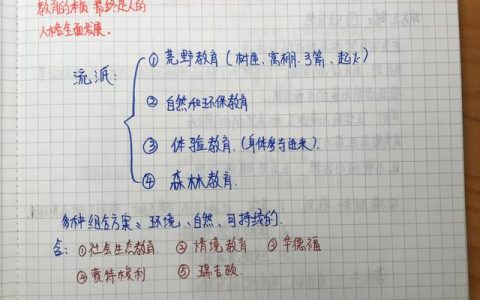 教育的本质 最终是人的
人格全面发展。
流派:
① 荒野教育 (树屋、窝棚、弓箭、起火)
② 自然和环保教育
③ 体验教育.(身体参与进来).
④ 森林教育.
多种组合方案、环境、自然、可持续的.
含: ①社会生态教育. ② 情境教育 ③ 华德福
④ 蒙特梭利 ⑤ 瑞吉欧.